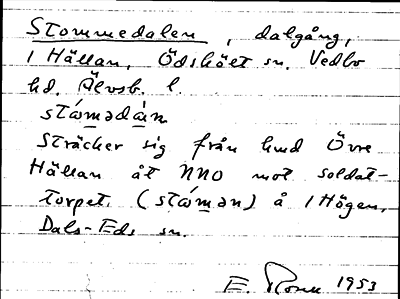 Stommedalen, dalgång,
1 Hällan, Ödskölt sn. Vedbo
hd. Älvsb. l.
Sträcker sig från hmd Övre
Hällan åt NNO mot soldat-
torpet (ståmən) å 1 Högen,
Dals-Eds sn.
E. 1953